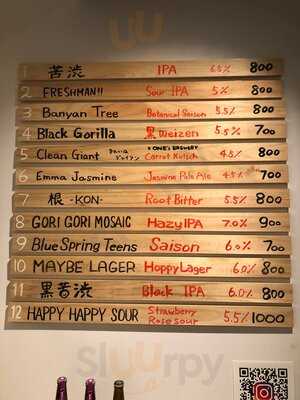 1 苦渋 IPA 6.5% 800
2 FRESHMAN!! Sour IPA 5% 800
3 Banyan Tree Botanical Saison 5.5% 800
4 Black Gorilla 黒 Weizen 5.5% 700
5 Clean Giant Carrot Kolsch 4.5% 800
6 Emma Jasmine Jasmine Pale Ale 4.5% 700
7 根 -KON- Root Bitter 5.5% 800
8 GORI GORI MOSAIC Hazy IPA 7.0% 900
9 Blue Spring Teens Saison 6.0% 700
10 MAYBE LAGER Hoppy Lager 6.0% 800
11 黒苦渋 Black IPA 6.0% 800
12 HAPPY HAPPY SOUR Strawberry Rose sour 5.5% 1000
slurrpy